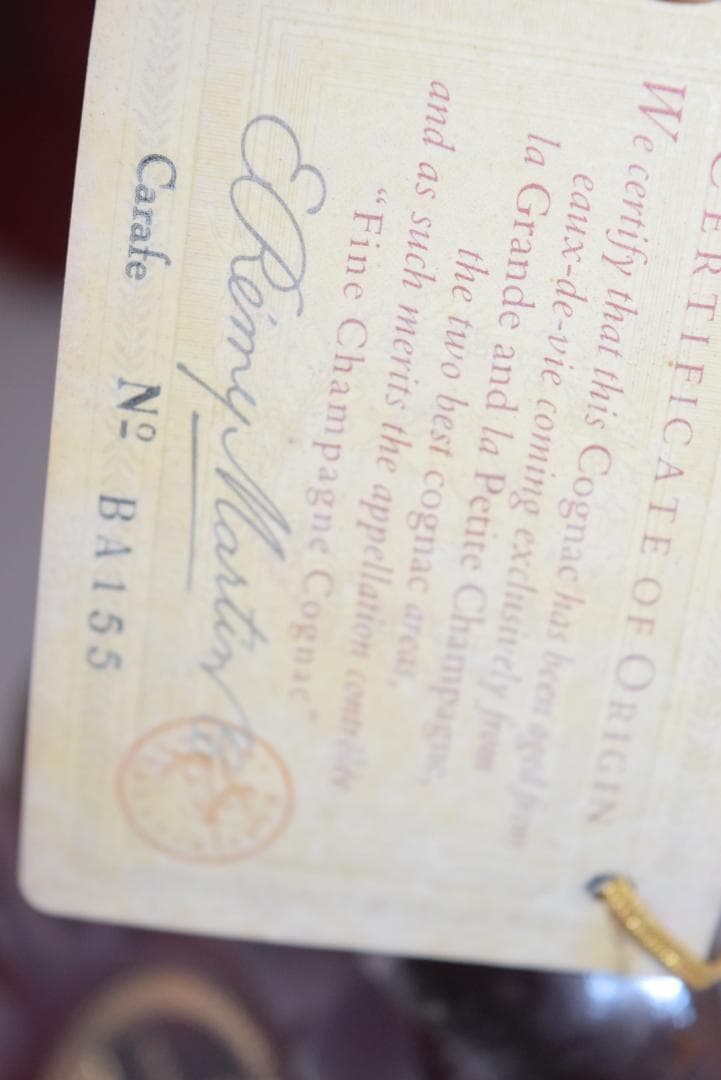 CERTIFICATE OF ORIGIN
We certify that this Cognac has been aged from
eaux-de-vie coming exclusively from
la Grande and la Petite Champagne,
the two best cognac areas,
and as such merits the appellation controlled
"Fine Champagne Cognac"
E Rémy Martin
Carafe Nº BA155